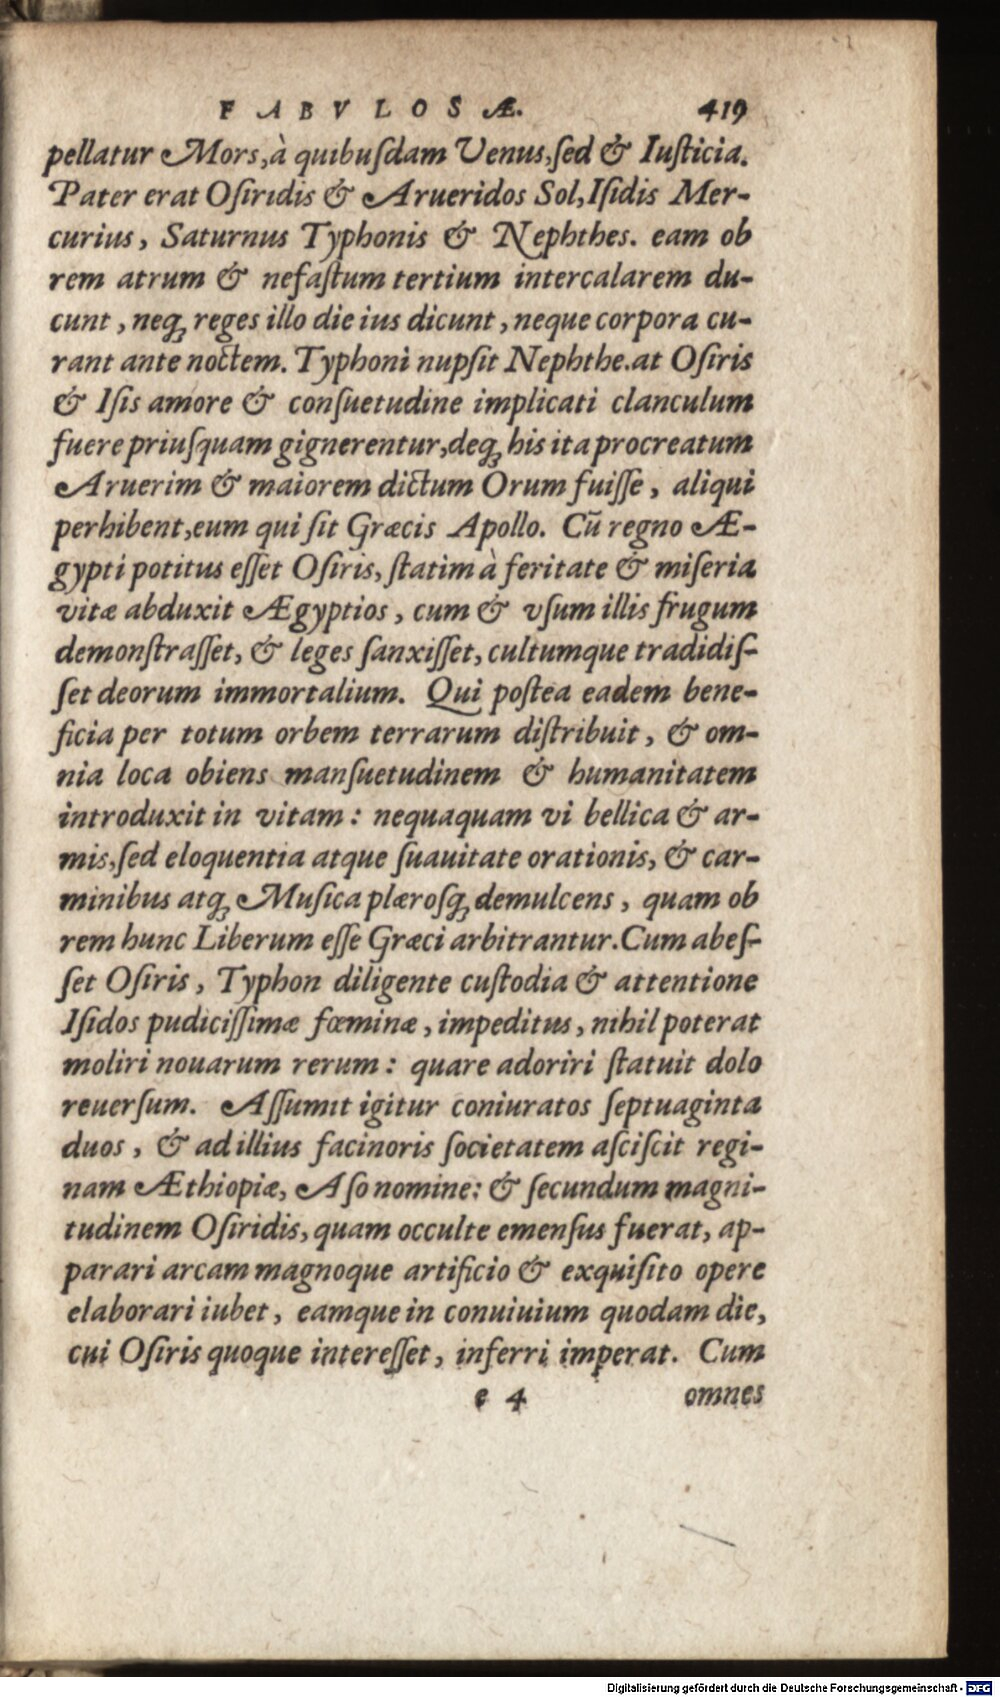 FABVLOSÆ. 419
pellatur Mors, à quibuſdam Venus, ſed & Iuſticia.
Pater erat Oſiridis & Arueridos Sol, Iſidis Mer-
curius, Saturnus Typhonis & Nephthes. eam ob
rem atrum & nefaſtum tertium intercalarem du-
cunt, neq; reges illo die ius dicunt, neque corpora cu-
rant ante noctem. Typhoni nupſit Nephthe. at Oſiris
& Iſis amore & conſuetudine implicati clanculum
fuere priuſquam gignerentur, deq; his ita procreatum
Aruerim & maiorem dictum Orum fuiſſe, aliqui
perhibent, eum qui ſit Græcis Apollo. Cū regno Æ-
gypti potitus eſſet Oſiris, ſtatim à feritate & miſeria
vitæ abduxit Ægyptios, cum & vſum illis frugum
demonſtraſſet, & leges ſanxiſſet, cultumque tradidiſ-
ſet deorum immortalium. Qui poſtea eadem bene-
ficia per totum orbem terrarum diſtribuit, & om-
nia loca obiens manſuetudinem & humanitatem
introduxit in vitam: nequaquam vi bellica & ar-
mis, ſed eloquentia atque ſuauitate orationis, & car-
minibus atq; Muſica plæroſq; demulcens, quam ob
rem hunc Liberum eſſe Græci arbitrantur. Cum abeſ-
ſet Oſiris, Typhon diligente cuſtodia & attentione
Iſidos pudiciſſimæ fœminæ, impeditus, nihil poterat
moliri nouarum rerum: quare adoriri ſtatuit dolo
reuerſum. Aſſumit igitur coniuratos ſeptuaginta
duos, & ad illius facinoris ſocietatem aſciſcit regi-
nam Æthiopiæ, Aſo nomine: & ſecundum magni-
tudinem Oſiridis, quam occulte emenſus fuerat, ap-
parari arcam magnoque artificio & exquiſito opere
elaborari iubet, eamque in conuiuium quodam die,
cui Oſiris quoque intereſſet, inferri imperat. Cum
e 4 omnes
Digitalisierung gefördert durch die Deutsche Forschungsgemeinschaft - DFG